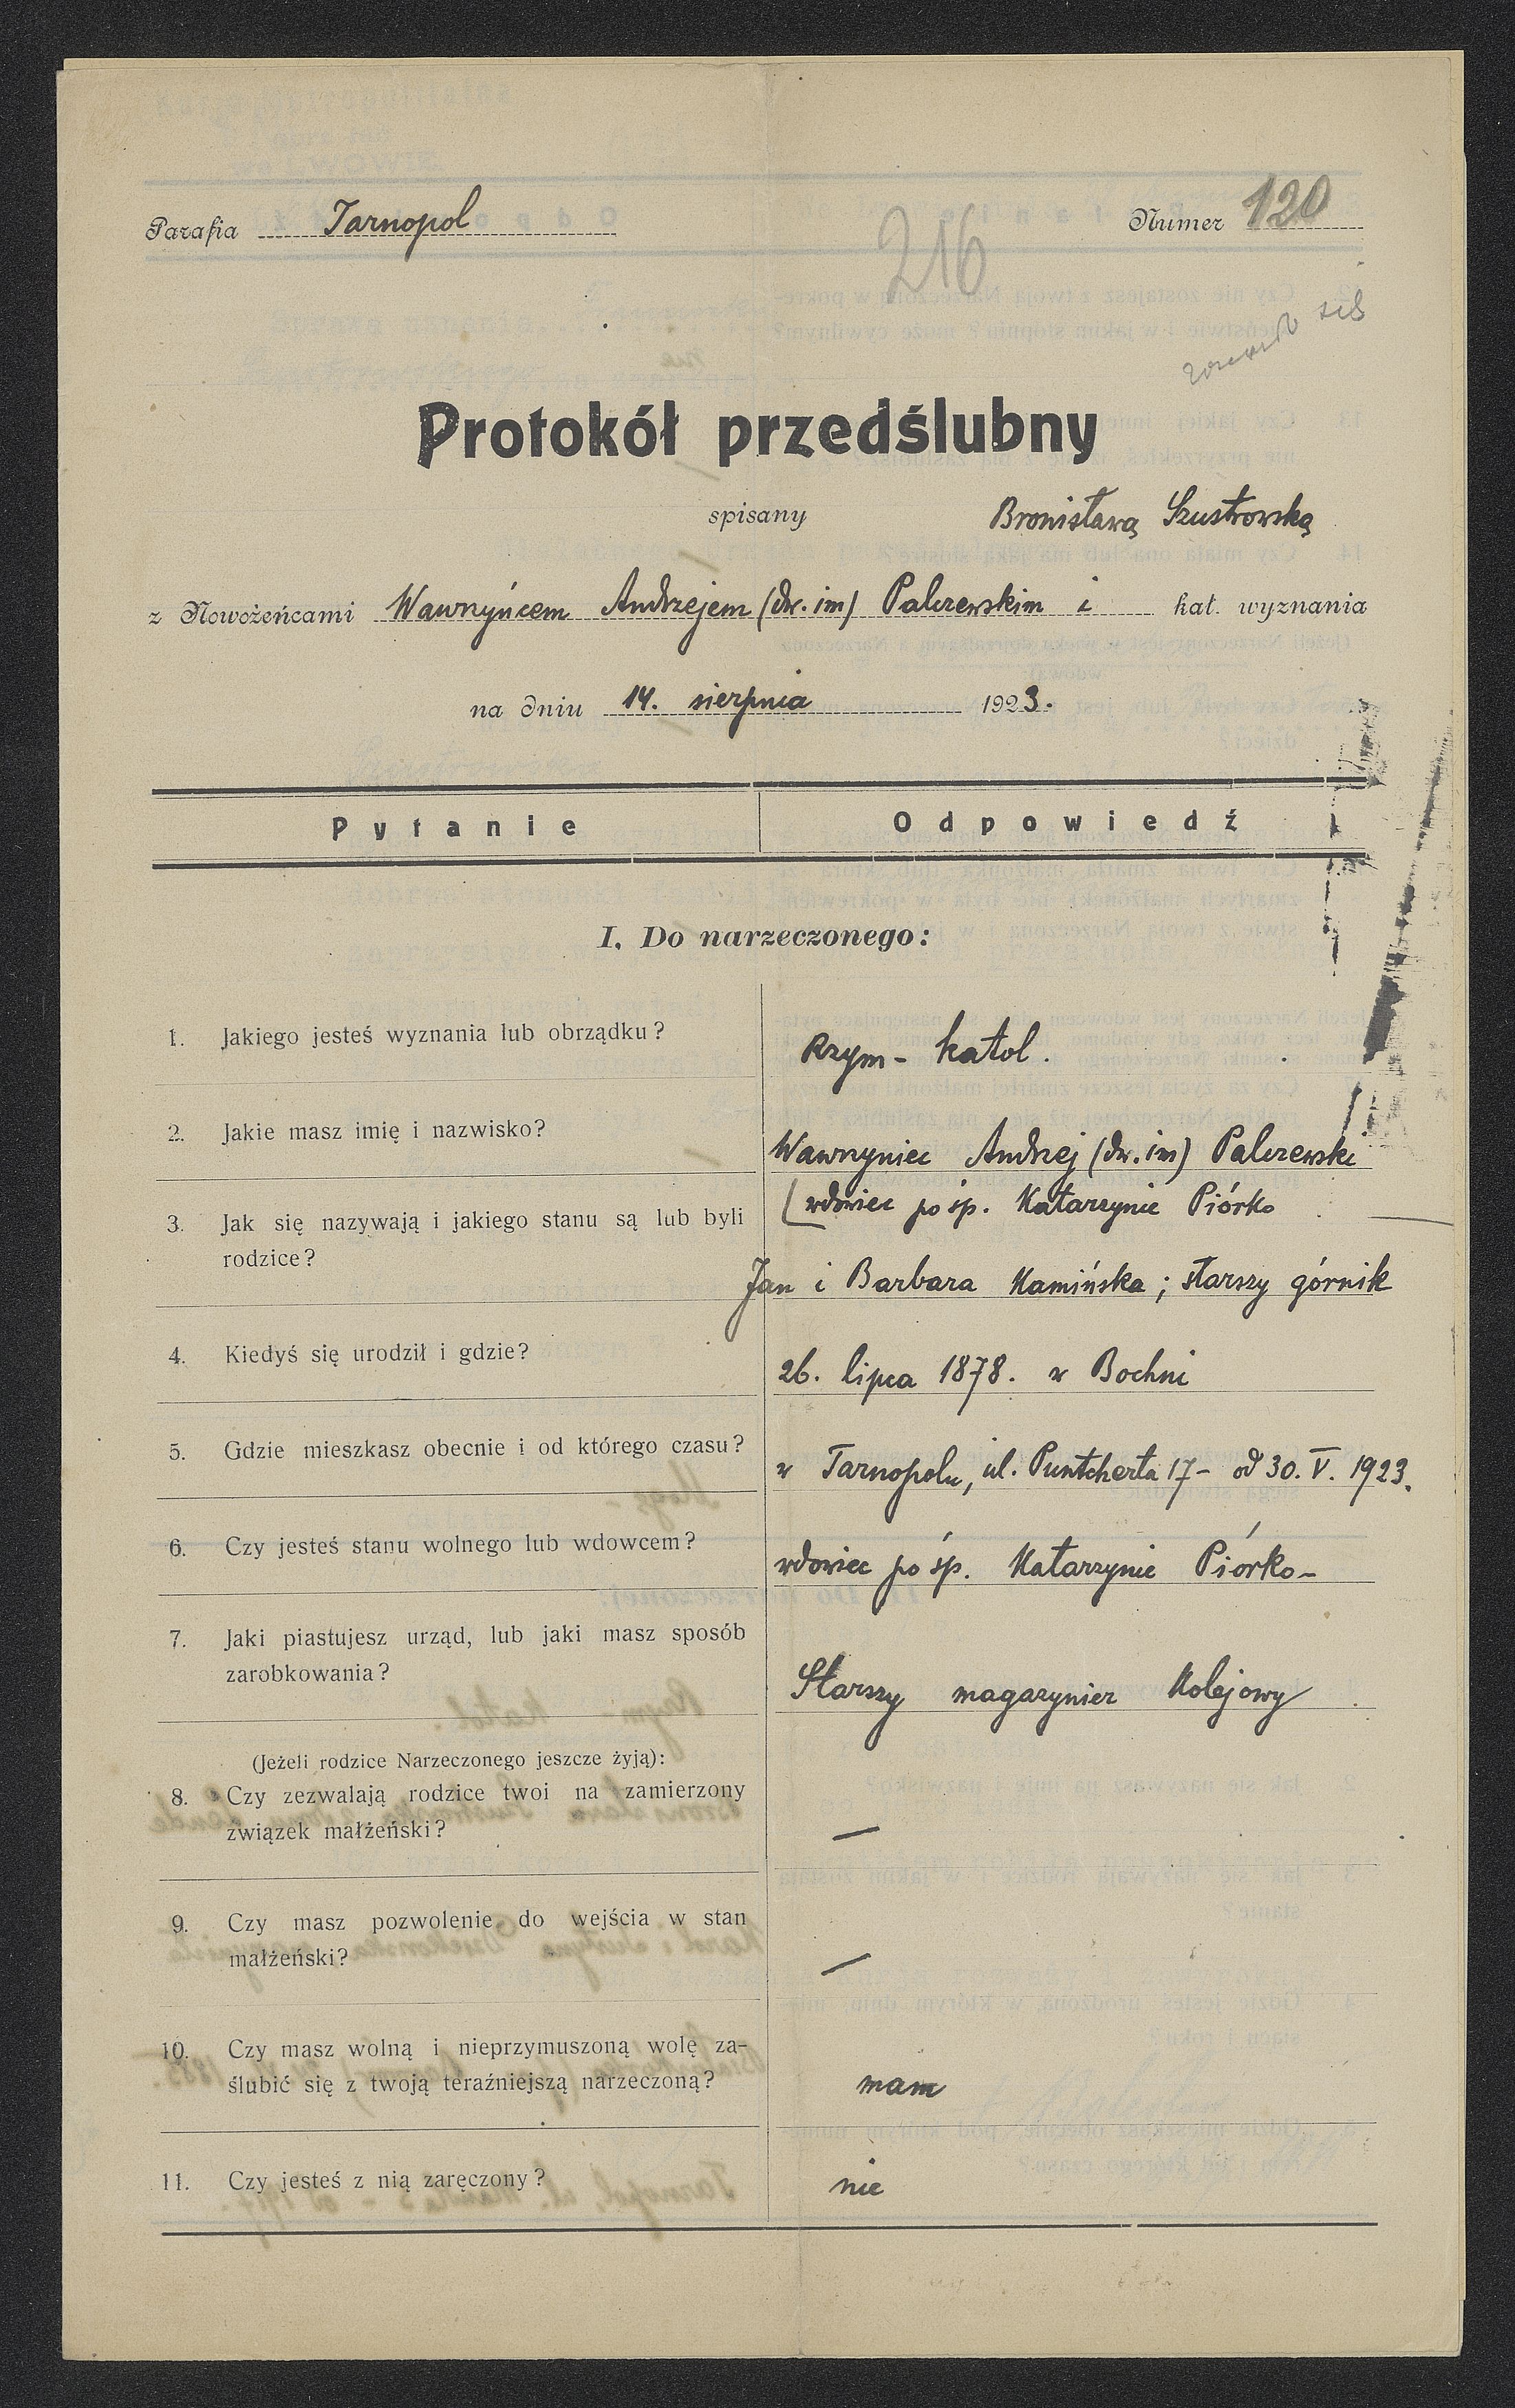 Parafia Tarnopol
Numer 120
216
Protokół przedślubny
spisany
Bronisławą Szustrowską
z Nowożeńcami Wawrzyńcem Andrzejem (dw. im) Palczewskim i kat. wyznania
na dniu 14. sierpnia 1923.
Pytanie Odpowiedź
I. Do narzeczonego:
1. Jakiego jesteś wyznania lub obrządku?
Rzym- katol.
2. Jakie masz imię i nazwisko?
Wawrzyniec Andrzej (dw. im) Palczewski
(wdowiec po śp. Katarzynie Piórko
3. Jak się nazywają i jakiego stanu są lub byli
rodzice?
Jan i Barbara Kamińska; starszy górnik
4. Kiedyś się urodził i gdzie?
26. lipca 1878. w Bochni
5. Gdzie mieszkasz obecnie i od którego czasu?
w Tarnopolu, ul. Puntcherta 17- od 30. V. 1923.
6. Czy jesteś stanu wolnego lub wdowcem?
wdowiec po śp. Katarzynie Piórko-
7. Jaki piastujesz urząd, lub jaki masz sposób
zarobkowania?
Starszy magazynier Kolejowy
(Jeżeli rodzice Narzeczonego jeszcze żyją):
8. Czy zezwalają rodzice twoi na zamierzony
związek małżeński?
—
9. Czy masz pozwolenie do wejścia w stan
małżeński?
—
10. Czy masz wolną i nieprzymuszoną wolę za-
ślubić się z twoją teraźniejszą narzeczoną?
mam
11. Czy jesteś z nią zaręczony?
nie